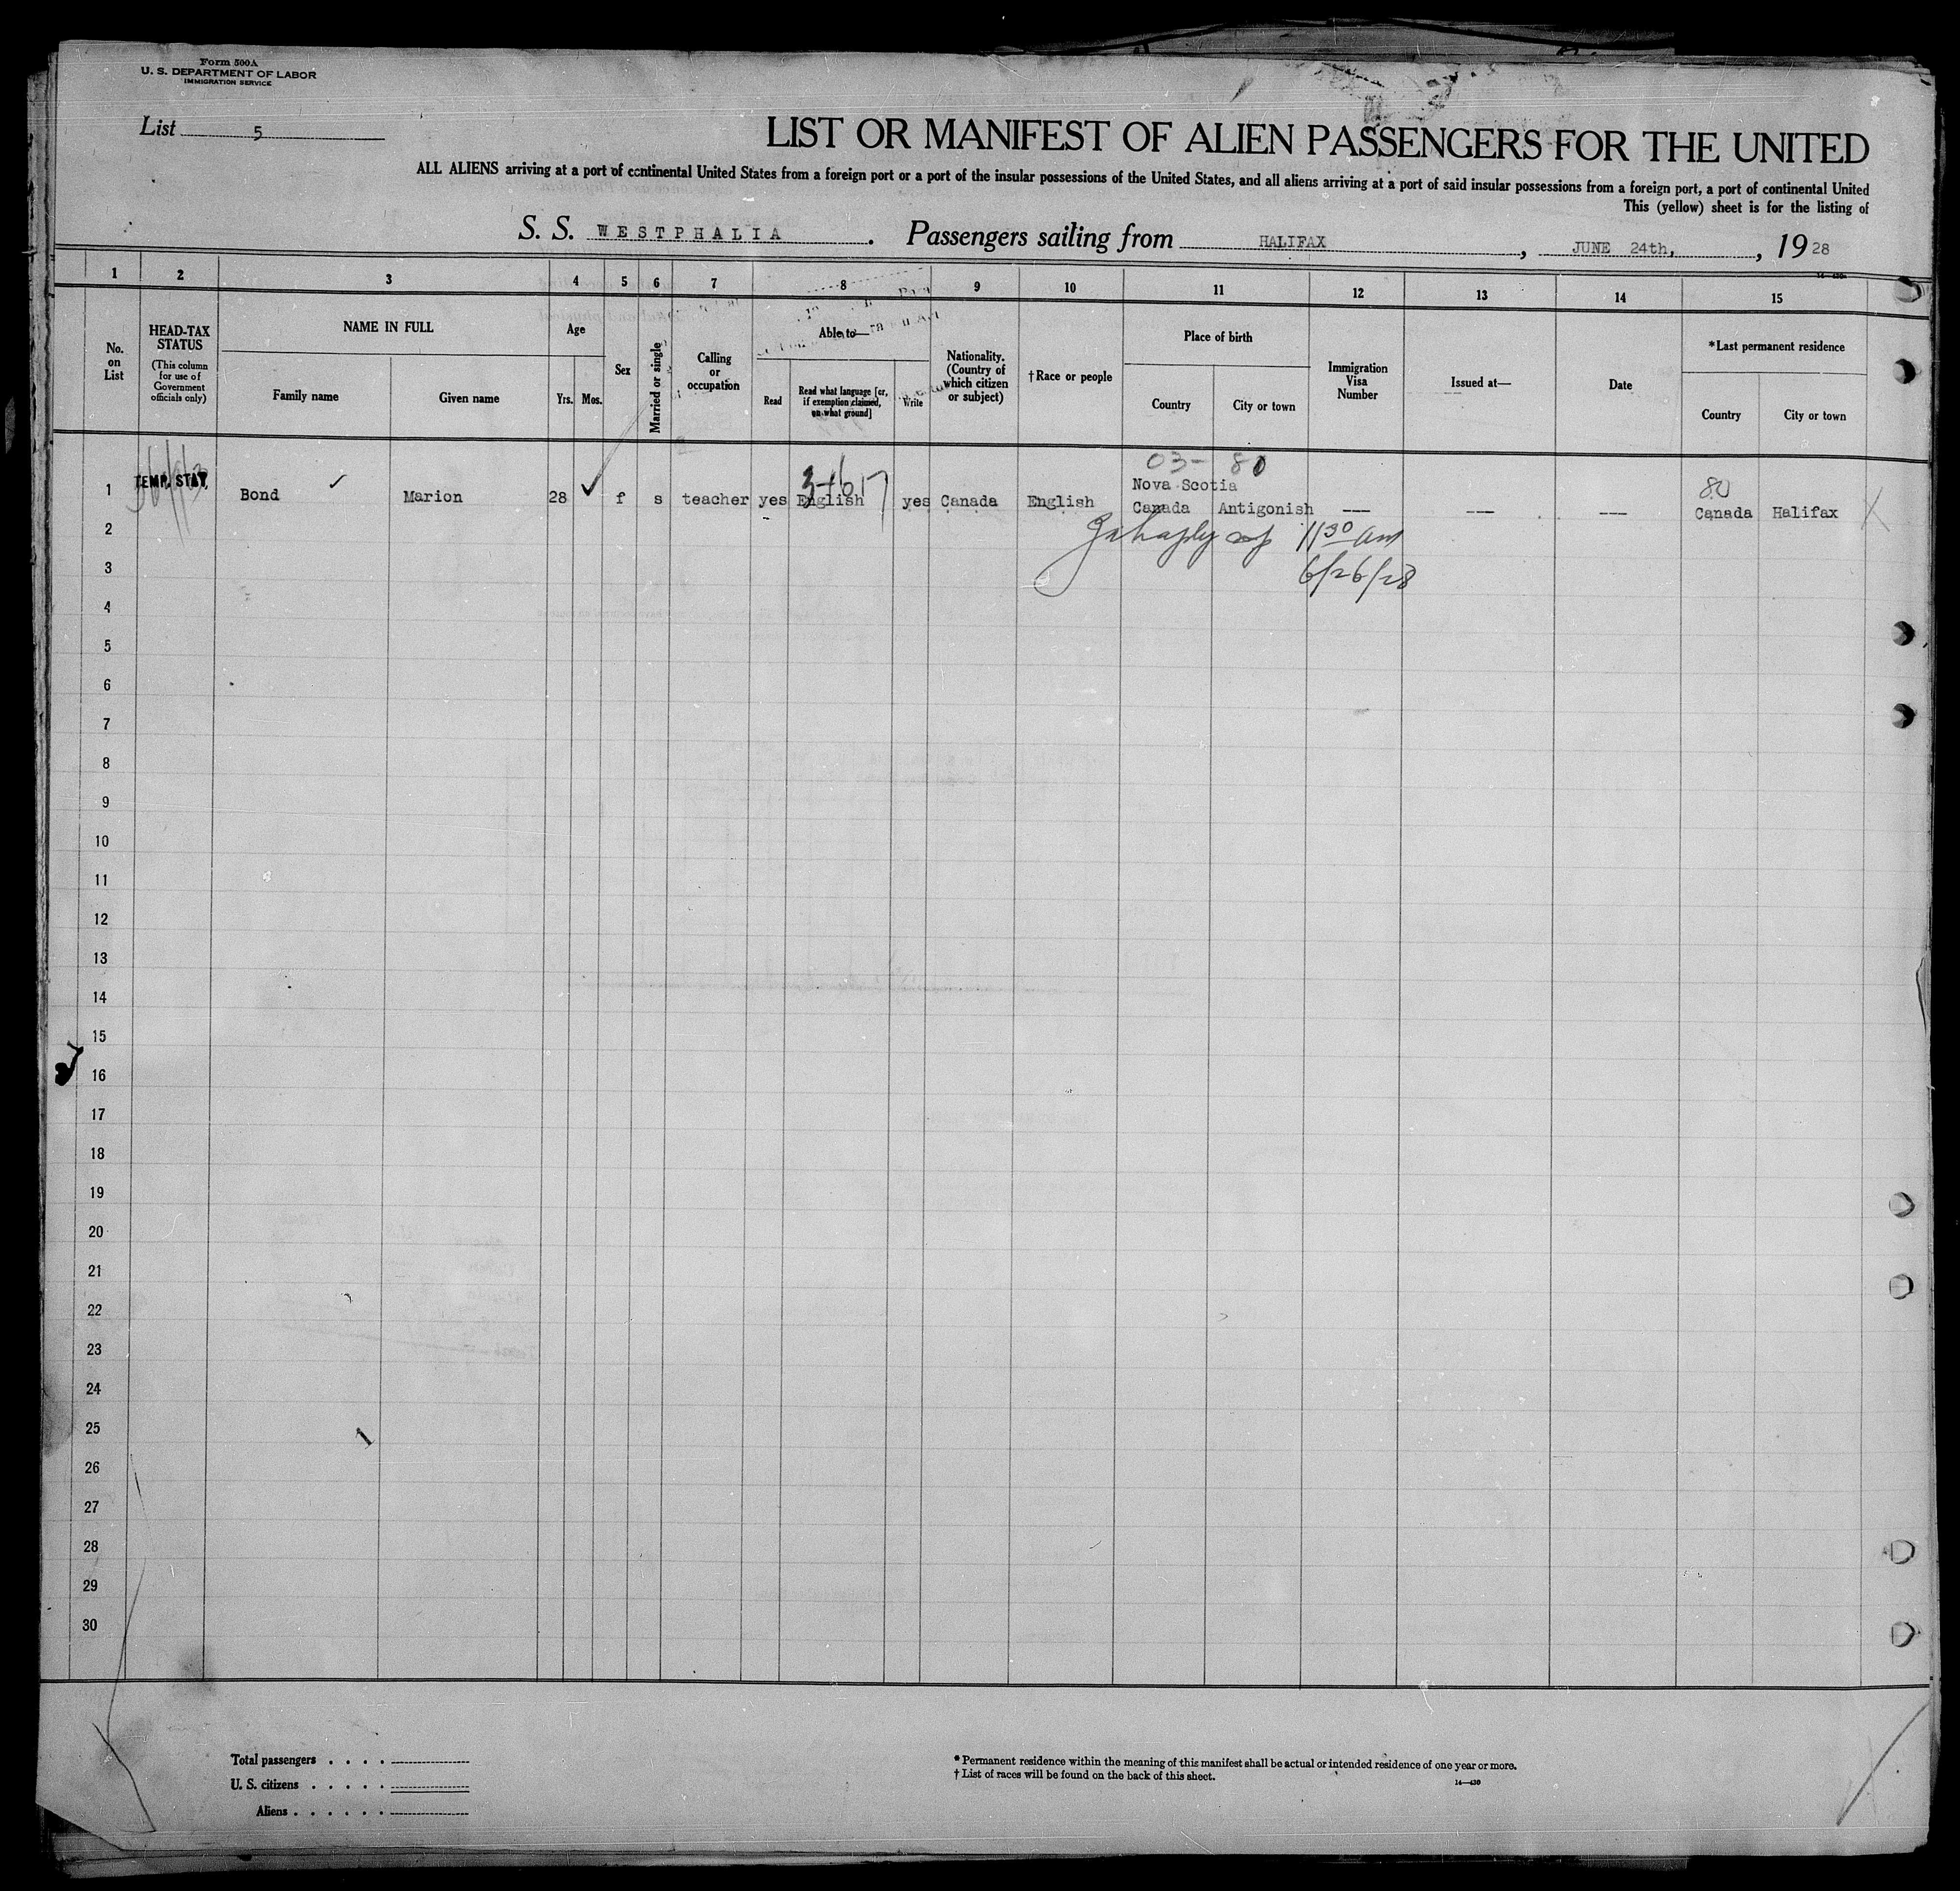 Form 500A
U. S. DEPARTMENT OF LABOR
IMMIGRATION SERVICE
List 5
LIST OR MANIFEST OF ALIEN PASSENGERS FOR THE UNITED
ALL ALIENS arriving at a port of continental United States from a foreign port or a port of the insular possessions of the United States, and all aliens arriving at a port of said insular possessions from a foreign port, a port of continental United
This (yellow) sheet is for the listing of
S. S. WESTPHALIA. Passengers sailing from HALIFAX, JUNE 24th, , 1928
1 2 3 4 5 6 7 8 9 10 11 12 13 14 15
No. on List
HEAD-TAX STATUS
(This column for use of Government officials only)
NAME IN FULL
Family name Given name
Age
Yrs. Mos.
Sex
Married or single
Calling or occupation
Able to—
Read
Read what language [or, if exemption claimed, on what ground]
Write
Nationality. (Country of which citizen or subject)
†Race or people
Place of birth
Country City or town
Immigration Visa Number
Issued at—
Date
*Last permanent residence
Country City or town
03- 80
1 TEMP. STAY. Bond ✓ Marion 28 ✓ f s teacher yes English yes Canada English Nova Scotia
Canada Antigonish --- --- --- 80 Canada Halifax X
2 1130 am
3 6/26/28
4
5
6
7
8
9
10
11
12
13
14
15
16
17
18
19
20
21
22
23
24
25
26
27
28
29
30
Total passengers . . . .
U. S. citizens . . . . .
Aliens . . . . . .
* Permanent residence within the meaning of this manifest shall be actual or intended residence of one year or more.
† List of races will be found on the back of this sheet.
14—430